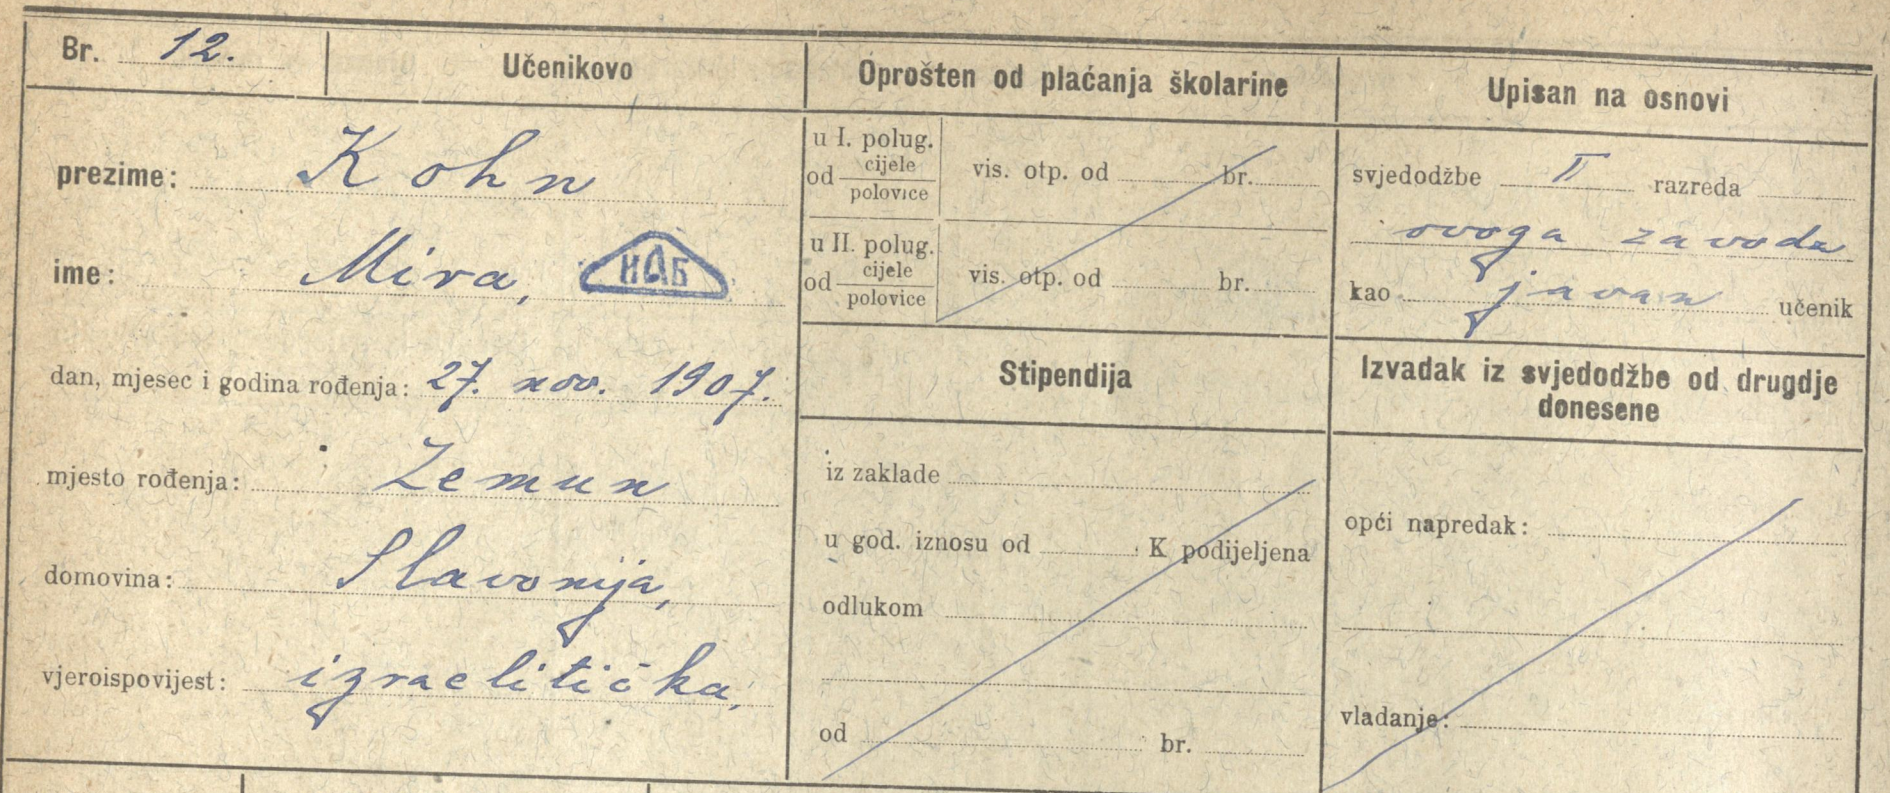 Br. 12.
Učenikovo
prezime: Kohn
ime: Mira, ИАБ
dan, mjesec i godina rođenja: 27. nov. 1907.
mjesto rođenja: Zemun
domovina: Slavonija,
vjeroispovijest: izraelitička,
Oprošten od plaćanja školarine
u I. polug.
od cijele
polovice
vis. otp. od br.
u II. polug.
od cijele
polovice
vis. otp. od br.
Stipendija
iz zaklade
u god. iznosu od K podijeljena
odlukom
od br.
Upisan na osnovi
svjedodžbe II razreda
ovoga zavoda
kao javan učenik
Izvadak iz svjedodžbe od drugdje
donesene
opći napredak:
vladanje: